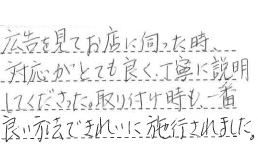 広告を見てお店に伺った時、
対応がとても良く、丁寧に説明
してくださった。取り付け時も一番
良い方法できれいに施行されました。